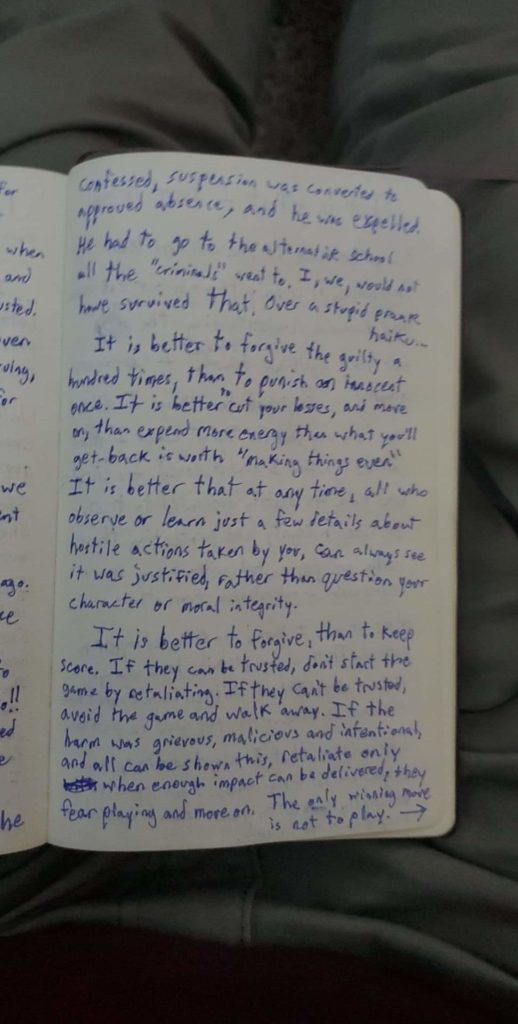 for
when
and
usted.
ven
for
we
nt
ago.
ce
o!!
ed
e
he
confessed, suspension was converted to
approved absence, and he was expelled.
He had to go to the alternative school
all the "criminals" went to. I, we, would not
have survived that. Over a stupid prank
haiku...
It is better to forgive the guilty a
hundred times, than to punish an innocent
once. It is better to cut your losses, and move
on, than expend more energy than what you'll
get-back is worth "making things even"
It is better that at any time, all who
observe or learn just a few details about
hostile actions taken by you, can always see
it was justified, rather than question your
character or moral integrity.
It is better to forgive, than to keep
score. If they can be trusted, don't start the
game by retaliating. If they can't be trusted,
avoid the game and walk away. If the
harm was grievous, malicious and intentional,
and all can be shown this, retaliate only
when enough impact can be delivered, they
fear playing and move on. The only winning move
is not to play. →